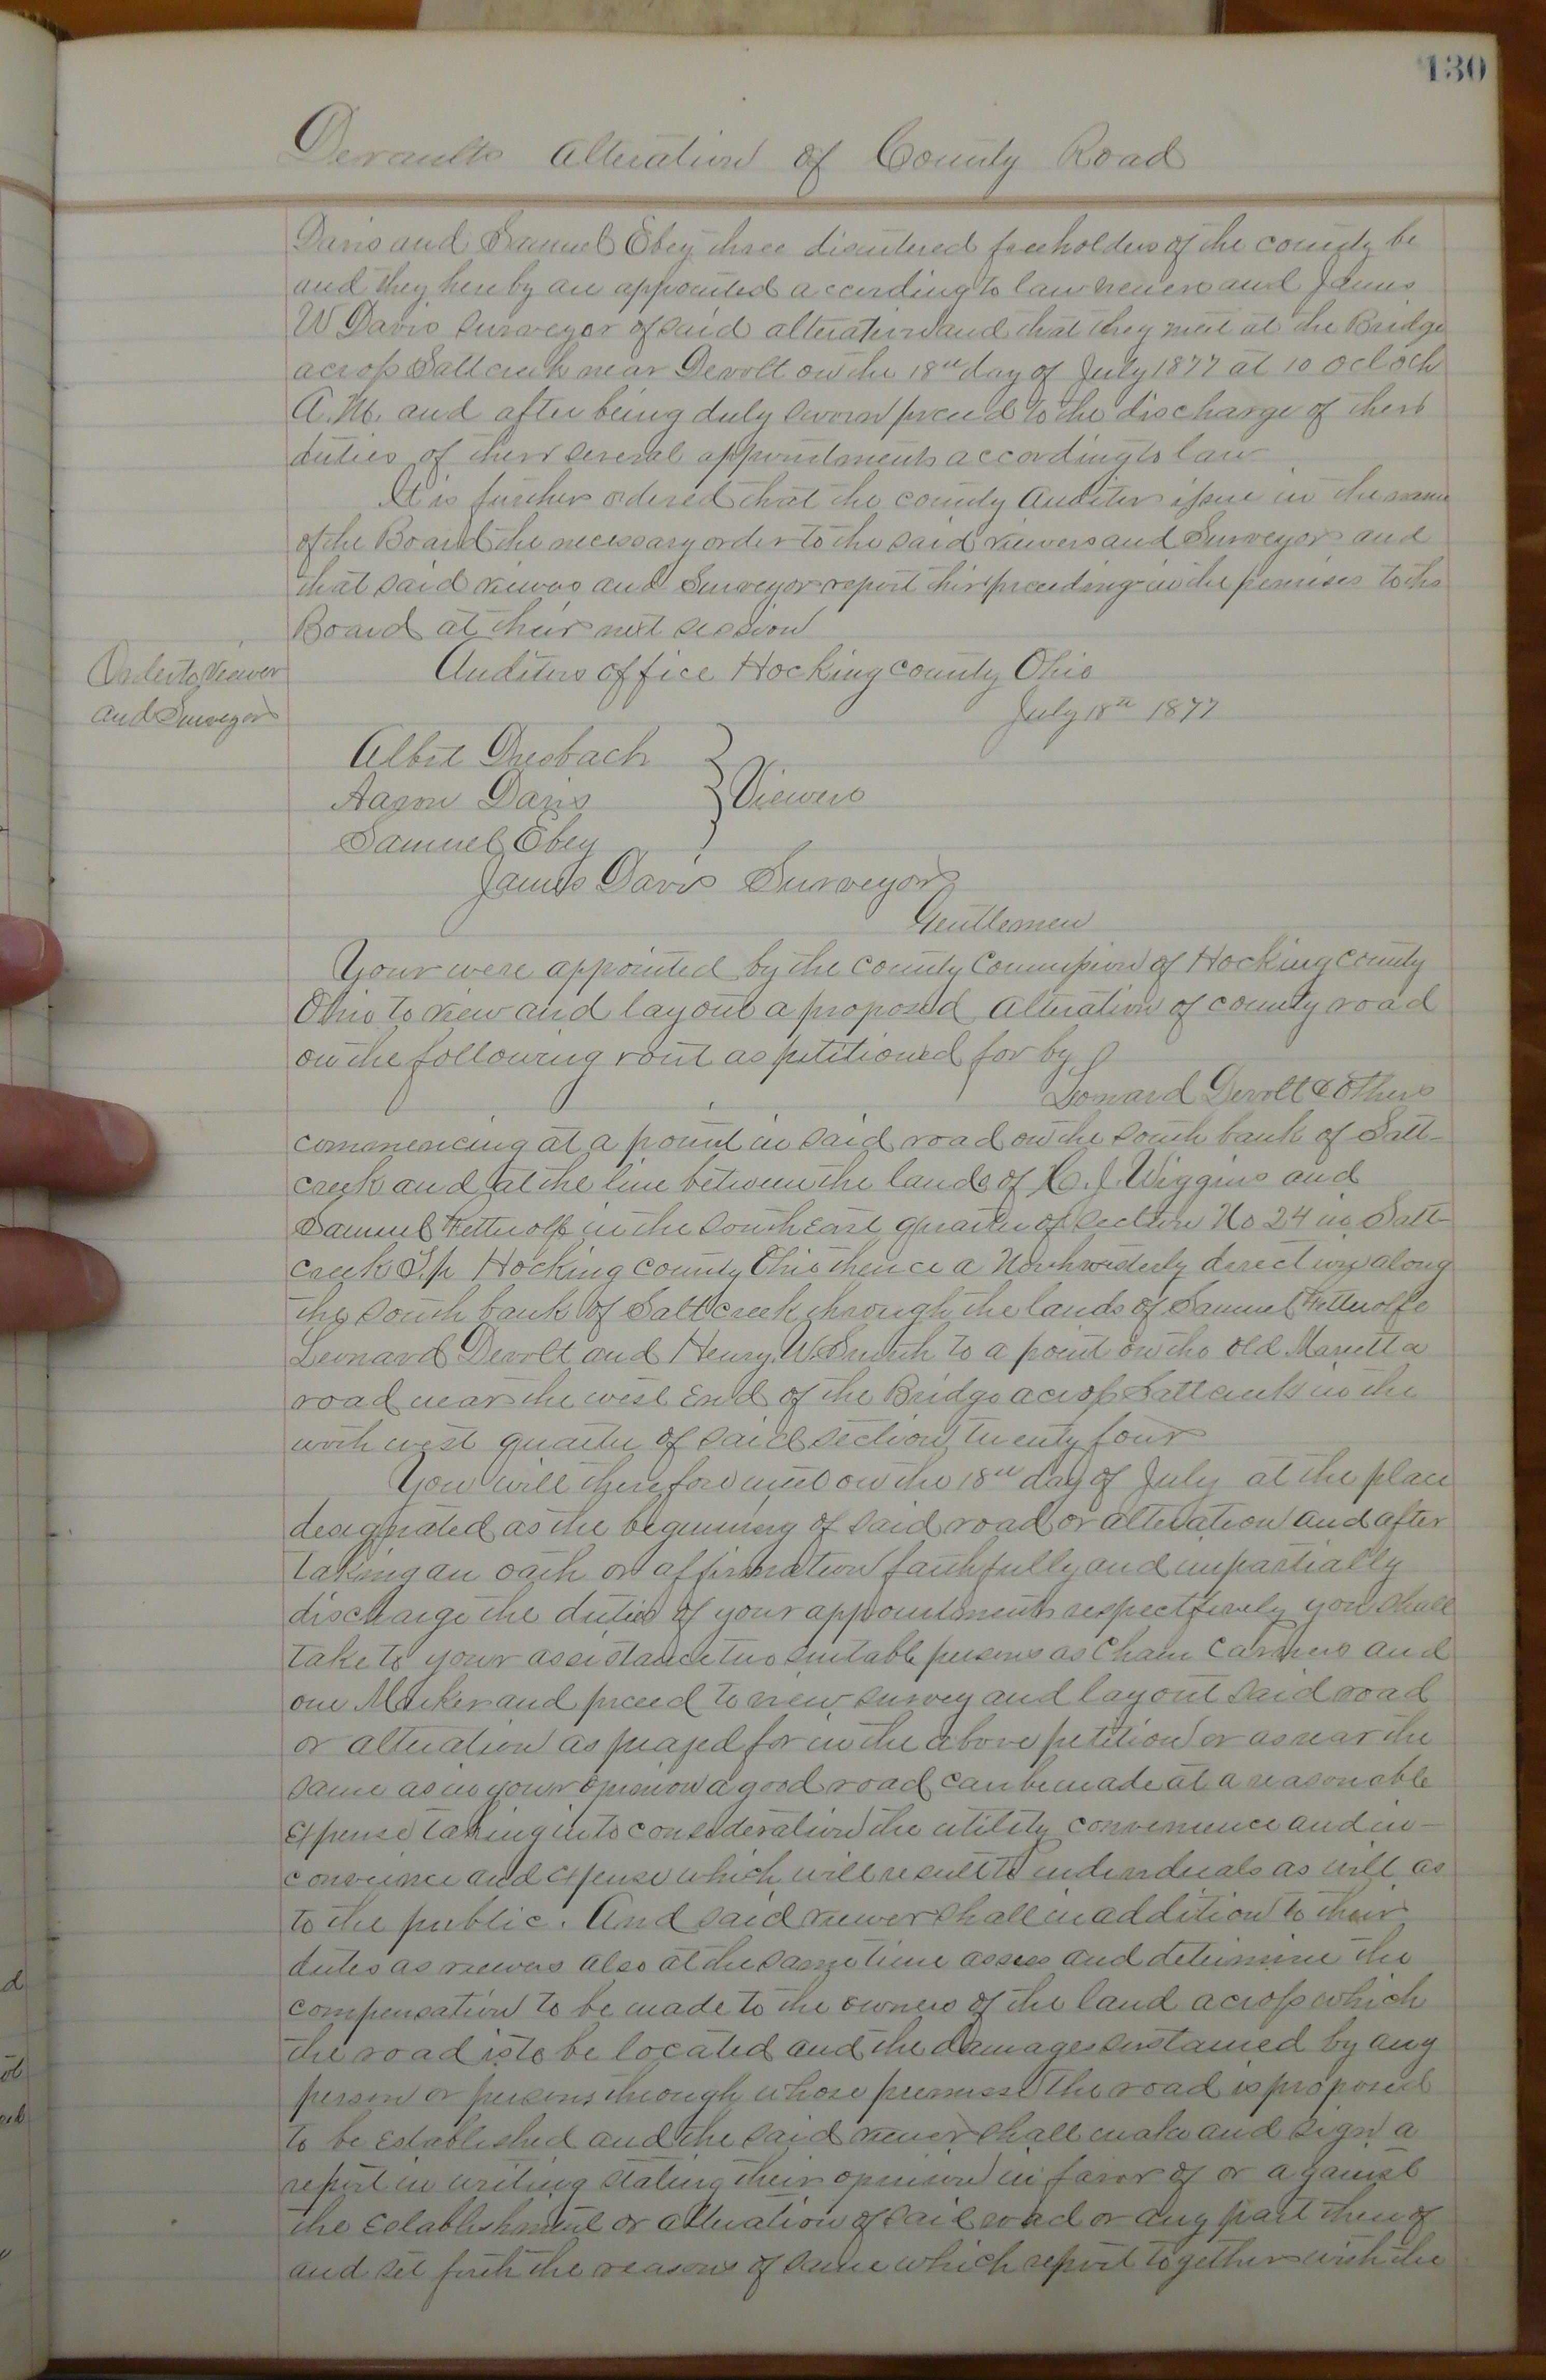 130
Devaults Alteration of County Road
Davis and Samuel Ebey three disentered freeholders of the county be
and they hereby are appointed according to law viewers and James
W Davis Surveyor of said alteration and that they meet at the Bridge
across Saltcreek near Devolt on the 18th day of July 1877 at 10 Oclock
A.M. and after being duly sworn preed to the discharge of their
duties of their several appointments according to law
It is further ordered that the county Auditor issue in the name
of the Board the necessary order to the said viewers and Surveyor and
that said viewers and Surveyor report their preeding in the premises to the
Board at their next session
Order to Viewer
and Surveyor
Auditors office Hocking county Ohio
July 18th 1877
Albert Dresbach
Aaron Davis } Viewers
Samuel Ebey
James Davis Surveyor
Gentlemen
Your were appointed by the county Commission of Hocking county
Ohio to view and layout a proposed alteration of county road
on the following rout as petitioned for by
Leonard Devolt & Others
commencing at a point in said road on the south bank of Salt-
creek and at the line between the lands of C. J. Wiggins and
Samuel Fetterolf in the south east quarter of section No 24 in Salt-
creek T.p Hocking county Ohio thence a Northwesterly direction along
the south bank of Saltcreek through the lands of Samuel Fetterolfe
Leonard Devolt and Henry W. Smith to a point on the old Marietta
road near the west End of the Bridge across Saltcreek in the
north west quarter of said section twenty four
You will therefore meet on the 18th day of July at the place
designated as the beginning of said road or alteration and after
taking an oath or affirmation faithfully and impartially
discharge the duties of your appointments respectively you shall
take to your assistance two suitable persons as Chain Carriers and
one Marker and preed to view survey and layout said road
or alteration as prayed for in the above petition or as near the
same as in your opinion a good road can be made at a reasonable
Expense taking into consideration the utility convenience and in-
convience and expense which will result to individuals as well as
to the public. And said viewer shall in addition to their
duties as viewers also at the same time assess and determine the
compensation to be made to the owners of the land across which
the road is to be located and the damages sustained by any
person or persons through whose premises the road is proposed
to be Established and the said viewer shall make and sign a
report in writing stating their opinion in favor of or against
the Establishment or alteration of said road or any part thereof
and set forth the reasons of same which report together with the